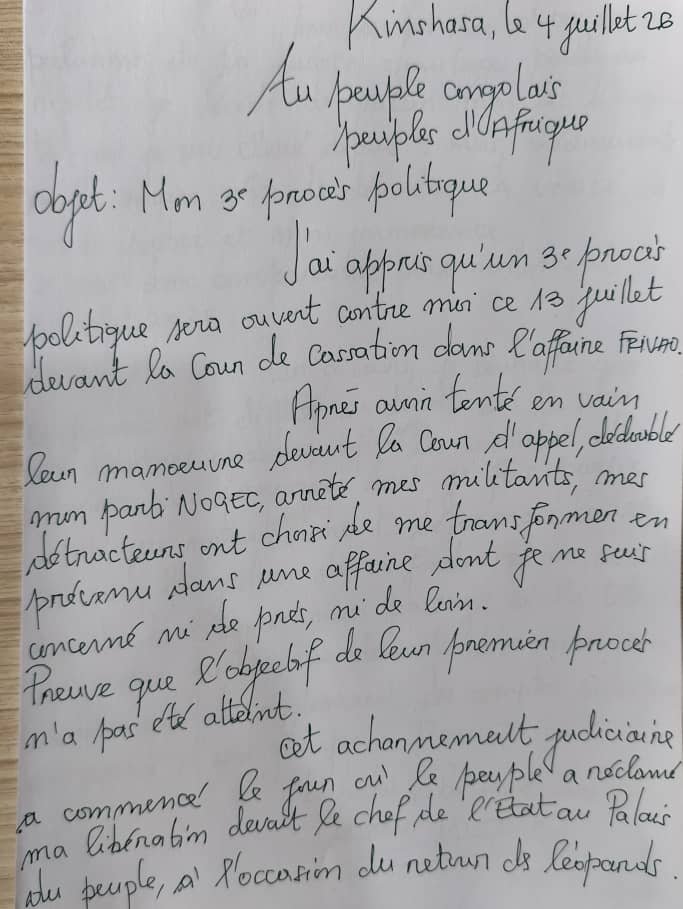 Kinshasa, le 4 juillet 26
Au peuple congolais
peuples d'Afrique
Objet: Mon 3e procès politique
J'ai appris qu'un 3e procès
politique sera ouvert contre moi ce 13 juillet
devant la Cour de Cassation dans l'affaire FRIVAO.
Après avoir tenté en vain
leur manoeuvre devant la Cour d'appel, dédoublé
mon parti NOGEC, arrêté mes militants, mes
détracteurs ont choisi de me transformer en
prévenu dans une affaire dont je ne suis
concerné ni de près, ni de loin.
Preuve que l'objectif de leur premier procès
n'a pas été atteint.
Cet acharnement judiciaire
a commencé le jour où le peuple a réclamé
ma libération devant le chef de l'Etat au Palais
du peuple, à l'occasion du retour ds léopards.